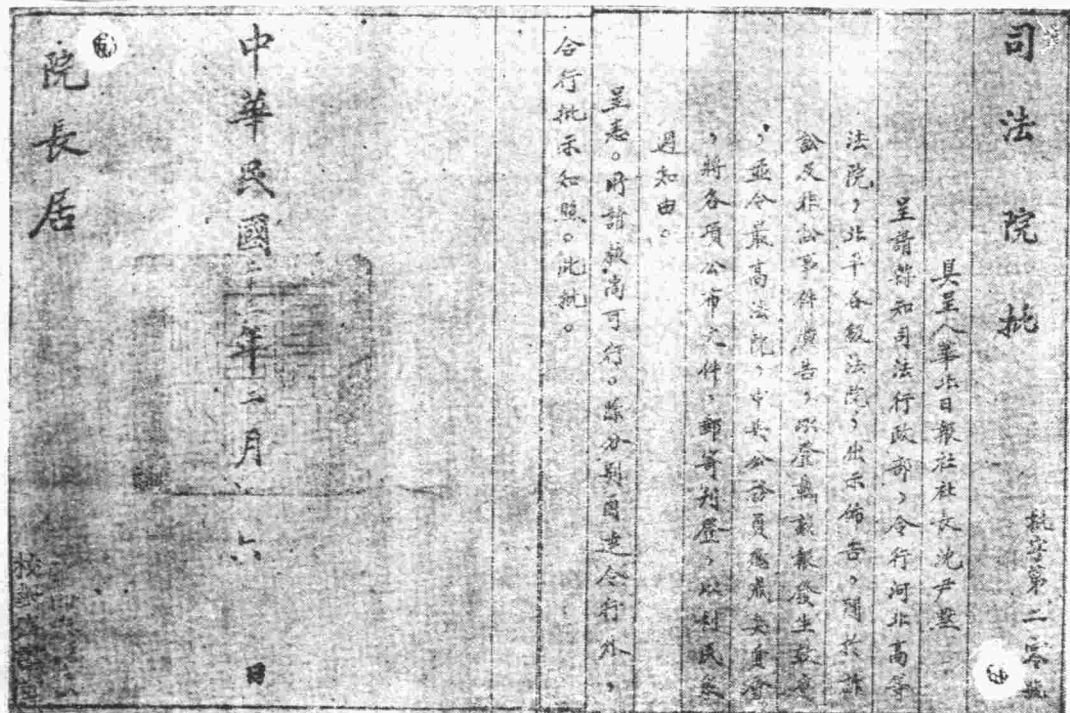 司法院批
批字第二零號
具呈人華北日報社社長沈尹默
呈請蒞知司法行政部,令行河北高等
法院,北平各級法院,出示佈告,關於訴
訟及非訟事件廣告,以登載該報發生效意
,並令最高法院,中央公務員懲戒委員會
,將各項公布文件,郵寄刊登,以利民衆
週知由。
呈悉。所請核尚可行。除分別函達令行外,
合行批示知照。此批。
中華民國二十二年二月 六 日
院長居
校對